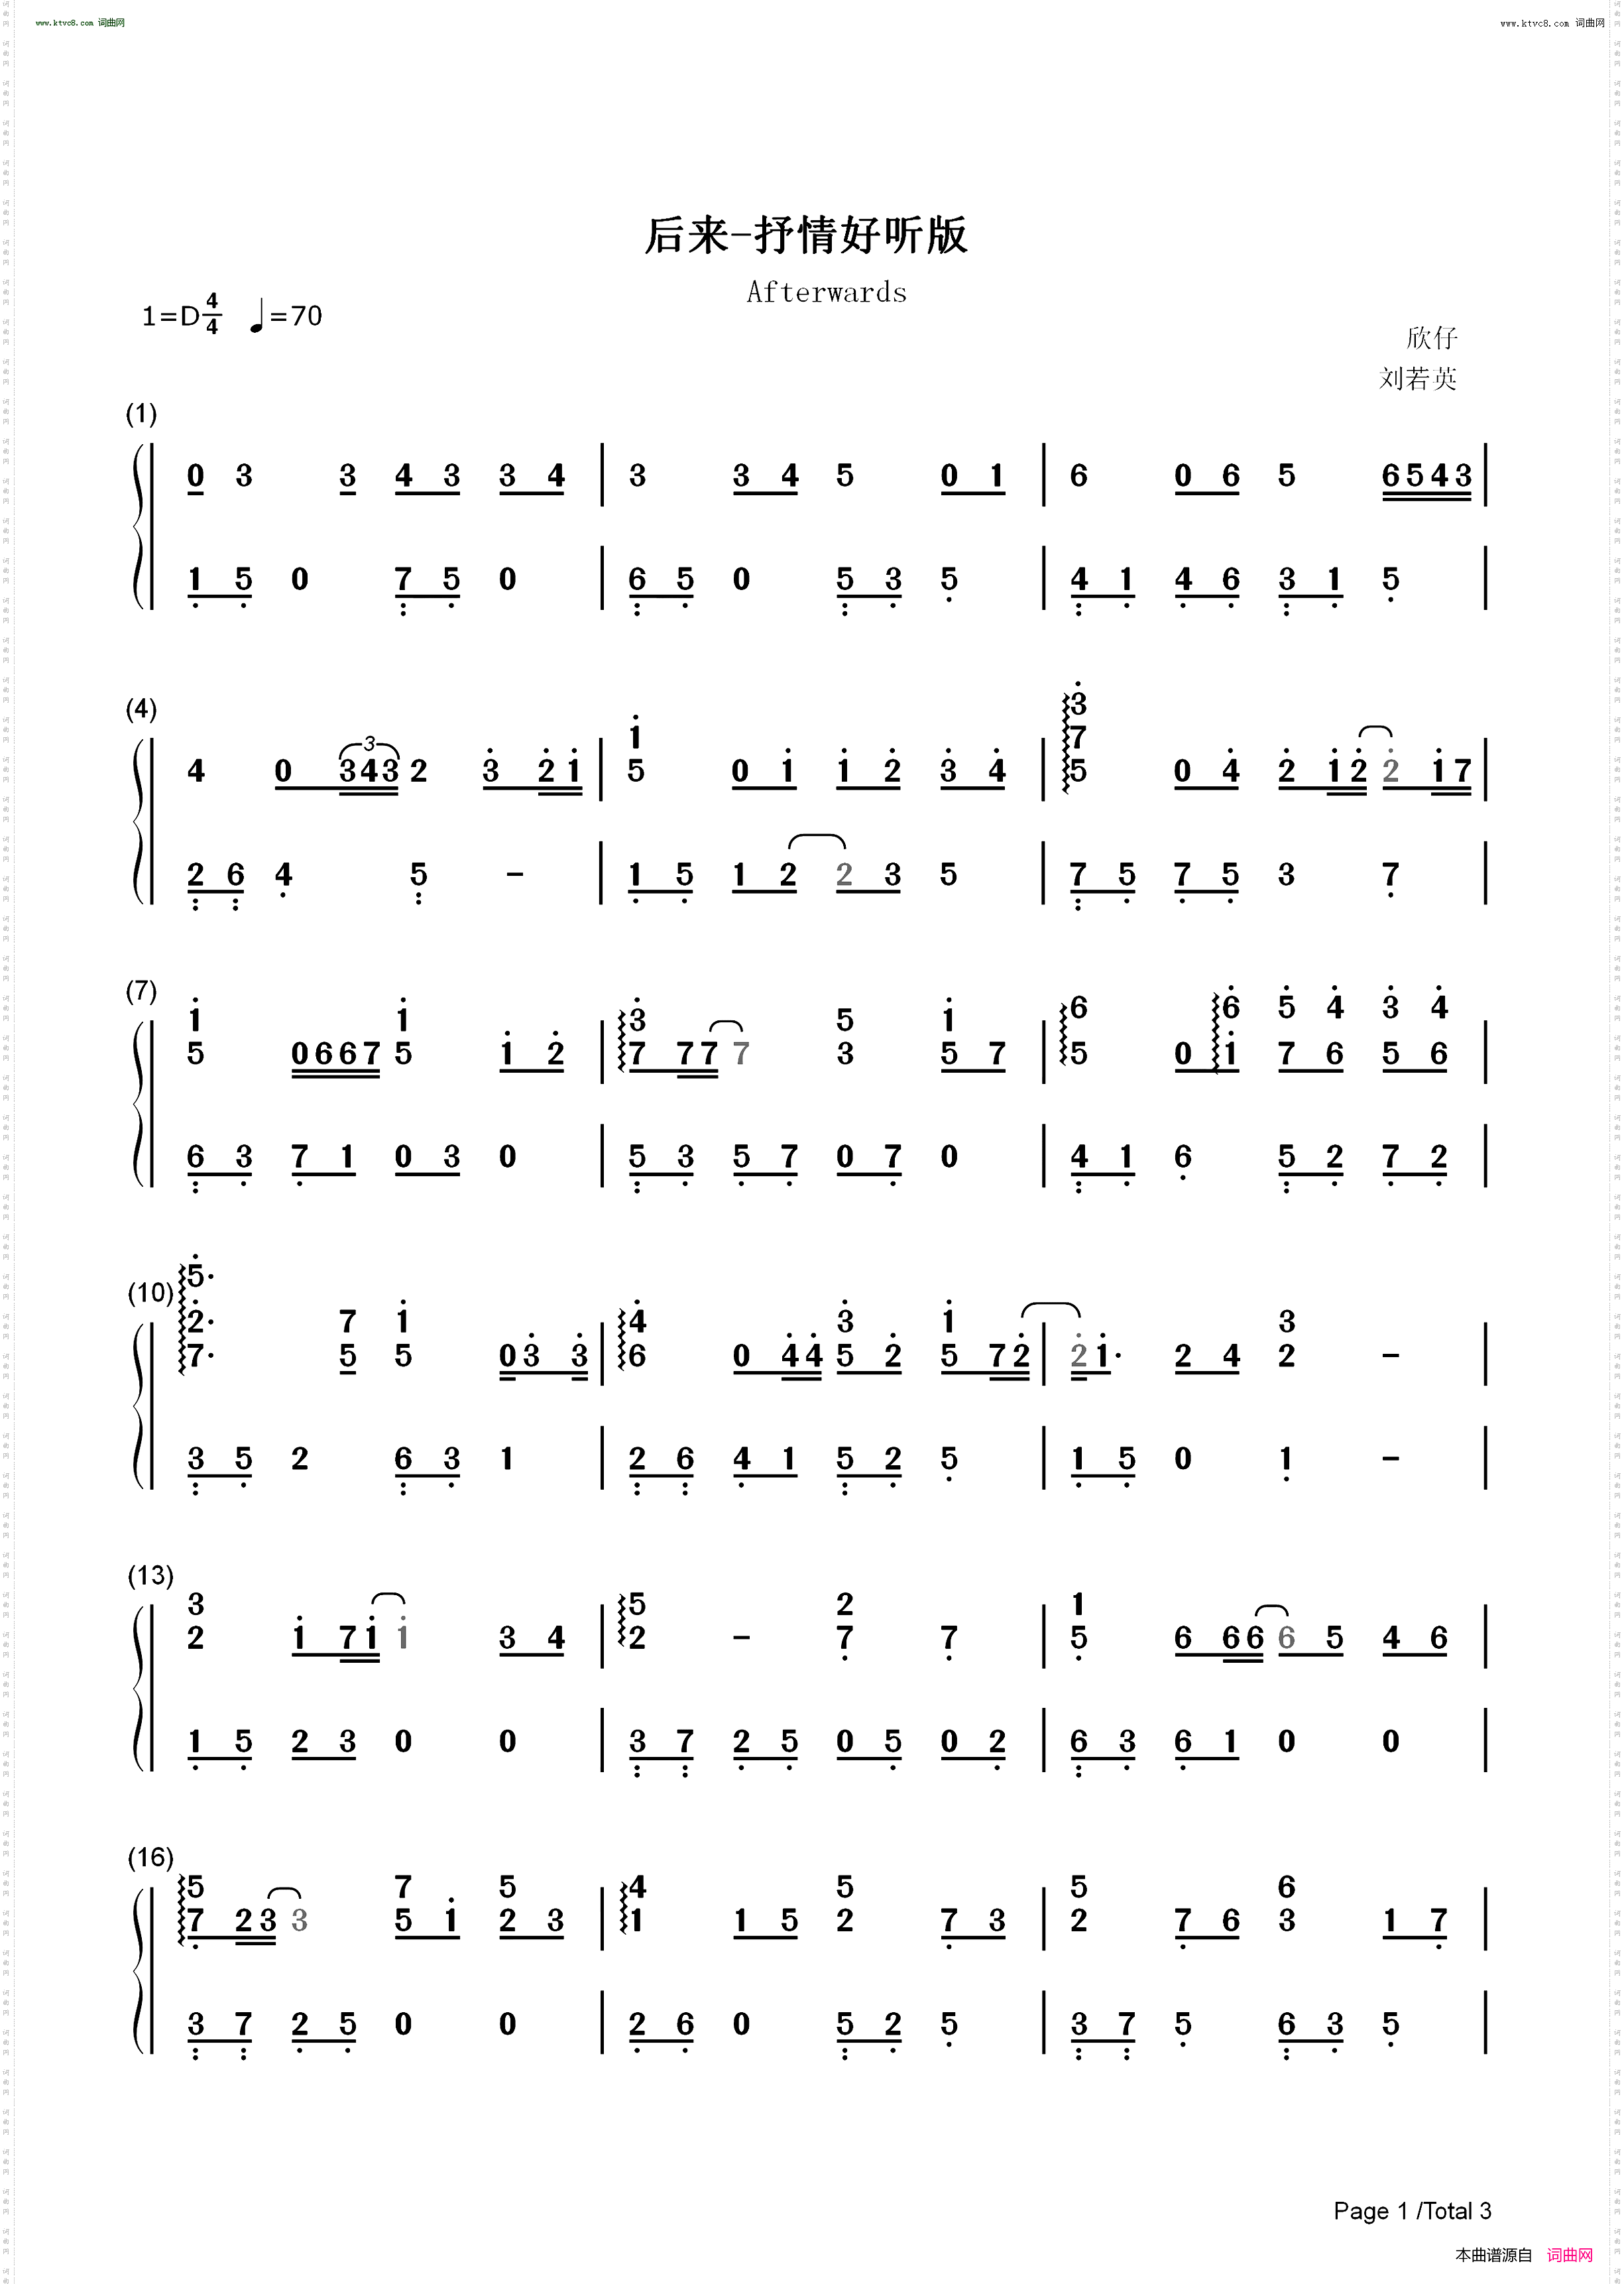 www.ktvc8.com 词曲网
www.ktvc8.com 词曲网
后来-抒情好听版
Afterwards
1=D 4/4 ♩=70
欣仔
刘若英
(1)
0 3 3 4 3 3 4 | 3 3 4 5 0 1 | 6 0 6 5 6 5 4 3 |
1 5 0 7 5 0 | 6 5 0 5 3 5 | 4 1 4 6 3 1 5 |
(4)
3
1 7
4 0 3 4 3 2 3 2 1 | 5 0 1 1 2 3 4 | 5 0 4 2 1 2 2 1 7 |
3
2 6 4 5 - | 1 5 1 2 2 3 5 | 7 5 7 5 3 7 |
(7)
1 1 3 5 1 6 6 5 4 3 4
5 0 6 6 7 5 1 2 | 7 7 7 7 3 5 7 | 5 0 1 7 6 5 6 |
6 3 7 1 0 3 0 | 5 3 5 7 0 7 0 | 4 1 6 5 2 7 2 |
(10)
5·
2· 7 1 4 3 1 3
7· 5 5 0 3 3 | 6 0 4 4 5 2 5 7 2 | 2 1· 2 4 2 - |
3 5 2 6 3 1 | 2 6 4 1 5 2 5 | 1 5 0 1 - |
(13)
3 5 2 1
2 1 7 1 1 3 4 | 2 - 7 7 | 5 6 6 6 6 5 4 6 |
1 5 2 3 0 0 | 3 7 2 5 0 5 0 2 | 6 3 6 1 0 0 |
(16)
5 7 5 4 5 5 6
7 2 3 3 5 1 2 3 | 1 1 5 2 7 3 | 2 7 6 3 1 7 |
3 7 2 5 0 0 | 2 6 0 5 2 5 | 3 7 5 6 3 5 |
Page 1 /Total 3
本曲谱源自 词曲网